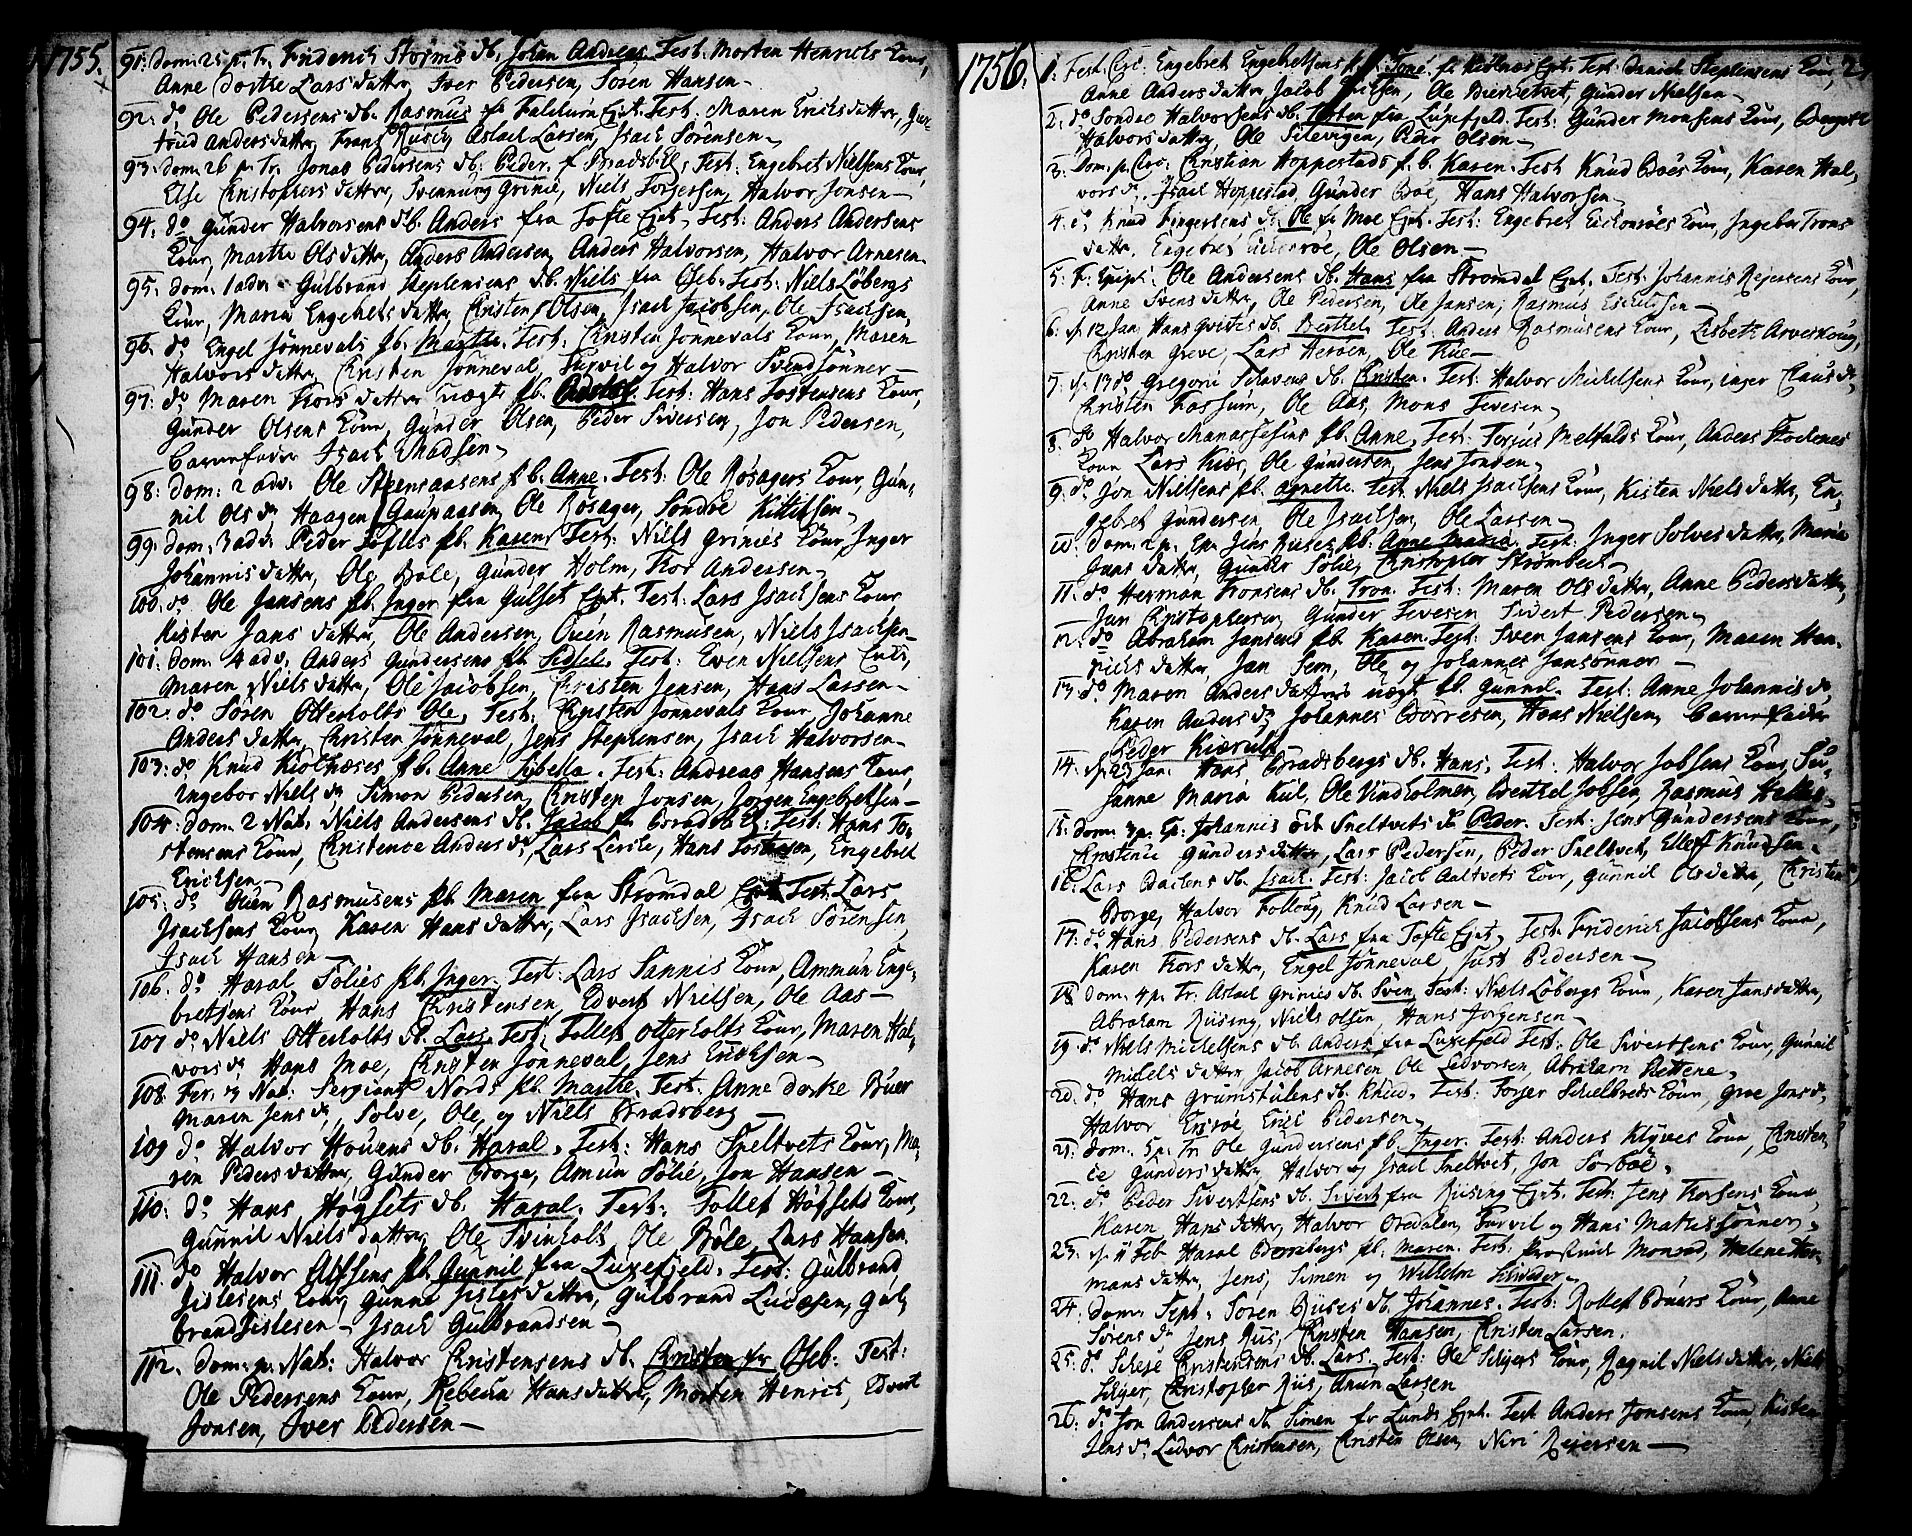 1755.
91. dom. 25 p. Tr. Friderich Storms db. Johan Andreas. Test: Morten Henrichs Kour,
Anne Dorthe Lars datter, Iver Pedersen, Soren Hansen
92. do Ole Pedersens db. Rasmus fra Falckum Ejnt. Test: Maren Erichs datter, Ger-
trud Anders datter, Franz Ruus, Aslach Larsen, Isach Sörensen
93. dom. 26 p. Tr. Jonas Pedersens db. Peder. f. Bradsb. Ej. Test: Engebret Nielsens Kour,
Else Christophers datter, Svennung Grinie, Niels Torgersen, Halvor Jonsen
94. do Gunder Halvorsens db. Anders fra Tofte Ejnt. Test: Anders Andersens
Kour, Marthe Ols datter, Anders Andersen, Anders Halvorsen, Halvor Arnesen
95. dom. 1 adv. Gulbrand Stephensens db. Niels fra Oseb. Test: Niels Löbergs
Kour, Maria Engebrets datter, Christen Olsen, Isach Jacobsen, Ole Isachsen,
96. do Engel Jönnevals pb. Marthe. Test: Christen Jönnevals Kour, Maren
Halvors datter, Christen Jönneval, Turvil og Halvor Svendsönner
97. do Maren Thors datter uægte pb. Test: Hans Tostensens Kour,
Gunder Olsens Kour, Gunder Olsen, Peder Siversen, Jon Pedersen,
Barnefader Isach Madsen
98. dom. 2 adv. Ole Steensaasens pb. Anne. Test: Ole Rösagers Kour, Gun-
nil Ols dr, Haagen Gaupaasen, Ole Rösager, Sondre Kittilsen
99. dom. 3 adv. Peder Toftes pb. Karen. Test: Niels Grinies Kour, Inger
Johannis datter, Ole Böle, Gunder Holm, Thor Andersen
100. do Ole Jansens pb. Inger fra Gulset Ejnt. Test: Lars Isachsens Kour,
Kisten Jans datter, Ole Andersen, Ouen Rasmusen, Niels Isachsen
101. dom. 4 adv. Anders Gundersens pb. Sidsel. Test: Even Nielsens Kour,
Maren Niels datter, Ole Jacobsen, Christen Jensen, Hans Larsen
102. do Sören Otterholts Ole, Test: Christen Jönnevals Kour, Johanne
Anders datter, Christen Jönneval, Jens Stephensen, Isach Halvorsen
103. do Knud Kiolnæses pb. Anne Sybella. Test: Andreas Hansens Kour,
Ingebor Niels dr, Simon Pedersen, Christen Jonsen, Jörgen Engebretsen
104. dom. 2 Nat: Niels Andersens db. Jacob fr. Bradsb. Ej: Test: Hans To-
stensens Kour, Christence Anders dr, Lars Lerche, Hans Tostensen, Engebret
Erichsen
105. do Ouen Rasmusens pb. Maren fra Strömdal Ejnt. Test: Lars
Isachsens Kour, Karen Hans datter, Lars Isachsen, Isach Sörensen
Isach Hansen
106. do Haral Solies pb. Inger. Test: Lars Sannis Kour, Ammun Enge-
bretsens Kour, Hans Christensen, Edvert Nielsen, Ole Aas
107 do Niels Otterholts db. Lars. Test: Tollef Otterholts Kour, Maren Hal-
vors dr, Hans Moe, Christen Jönneval, Jens Erichsen
108. Fer. 3 Nat: Sergiant Nords pb. Marthe. Test: Anne Dorthe Buer
Maren Jens dr, Solve, Ole, og Niels Bradsberg
109 do Halvor Houens db. Haral. Test: Hans Sneltvets Kour, Ma-
ren Peders datter, Gunder Borge, Amun Solie, Jon Hansen
110. do Hans Högsets db. Haral. Test: Tollef Högsets Kour,
Gunnil Niels datter, Ole Tvinholt, Ole Böle, Lars Hansen
111. do Halvor Alfsens pb. Gunnil fra Luxefjeld. Test: Gulbrand
Gislesens Kour, Gunne Gisles datter, Gulbrand Lucæsen, Gul-
brand Gislesen Isach Gulbrandsen
112. dom. p. Nat: Halvor Christensens db. Christen fr Oseb: Test:
Ole Pedersens Kour, Rebecca Hans datter, Morten Henrich, Edvert
Jonsen, Iver Pedersen
1756.
1. Fest. Circ: Engebret Engebretsens pb. Tone fr. Kiölnæs Ejnt. Test: Daniel Stephensens Kour,
Anne Anders datter, Jacob Erichsen, Ole Bierketvet, Gunder Nielsen
2. do Sondre Halvorsens db. Tosten fra Luxefjeld. Test: Gunder Monsens Kour,
Halvors datter, Ole Silevigen, Peder Olsen
3. Dom. p. Circ: Christian Hoppestads p. b. Karen. Test Knud Böes Kour, Karen Hal-
vors dr, Isach Hoppestad, Gunder Böe, Hans Halvorsen
4. do Knud Gingersens db. Ole fr Moe Ejnt. Test: Engebret Eichonröes Kour, Ingebor Trons
datter, Engebret Eichonröe, Ole Olsen
5. F. Epiph: Ole Andersens db. Hans fra Strömdal Ejnt. Test: Johannis Rejersens Kour,
Anne Svens datter, Ole Pedersen, Ole Jansen, Rasmus Erichsen
6. d. 12 Jan Hans Qvites db. Berthel. Test: Anders Rasmusens Kour, Lisbeth Arveskoug,
Christen Greve, Lars Heröen, Ole Rue
7. d. 13 do Gregorii Schavens db. Christen. Test: Halvor Michelsens Kour, Inger Claus dr
Christen Fossum, Ole Aas, Mons Tevesen
8. do Halvor Manassesens pb. Anne. Test: Terjus Melfalds Kour, Anders Stochenes
Kour Lars Kiær, Ole Gundersen, Jens Jonsen
9. do Jon Nielsens pb. Agnette. Test: Niels Isachsens Kour, Kisten Niels datter, En-
gebret Gundersen, Ole Isachsen, Ole Larsen
10. Dom. 2 p. Ep. Jens Ruses pb. Anne Maria. Test: Inger Solves datter, Maria
Jans datter, Gunder Solie, Christopher Strömbech
11. do Herman Tronsens db. Tron. Test: Maren Ols datter, Anne Peders datter,
Jan Christophersen, Gunder Tevesen, Sivert Pedersen
12. do Abraham Jansens pb. Karen. Test: Sven Jansens Kour, Maren Hen-
richs datter, Jan Sem, Ole og Johannes Jansönner
13. do Maren Anders datters uægte pb. Gunnil. Test: Anne Johannis dr,
Karen Anders dr, Johannes Börresen, Hans Nielsen, Barnefader
Peder Kiærulf
14. d. 23 Jan. Hans Bradsbergs db. Hans. Test: Halvor Jobsens Kour, Su-
sanne Maria Kul, Ole Vindholmen, Wentzel Jobsen, Rasmus
15. dom. 3 p. Ep. Johannis Sneltvets db. Peder. Test: Jens Gundersens Kour,
Christence Gunders datter, Lars Pedersen, Peder Sneltvet, Ellef Knudsen
16. Lars Bachens db. Isach. Test: Jacob Aaltvets Kour, Gunnil Ols datter, Christen
Borge, Halvor Fossoug, Knud Larsen
17. do Hans Pedersens db. Lars fra Tofte Ejnt. Test: Friderich Jacobsens Kour,
Karen Thors datter, Engel Jönneval, Just Pedersen
18. dom. 4 p. Tr. Aslach Grinies db. Sven, Test: Niels Löbergs Kour, Karen Jans datter,
Abraham Riising, Niels Olsen, Hans Jörgensen
19. do Niels Michelsens db. Anders fra Luxefjeld Test: Ole Sivertsens Kour, Gunnil
Michels datter, Jacob Arnesen, Ole Ledvorsen, Abraham Slettene
20. do Hans Grumstulens db. Knud. Test: Torger Skielbreds Kour, Groe Jons dr
Halvor Ersröe, Eric Pedersen
21. dom. 5 p. Tr. Ole Gundersens pb. Inger. Test: Anders Klyves Kour, Christen-
ce Gunders datter, Halvor og Isach Sneltvet, Jon Sorböe
22. do Peder Sivertsens db. Sivert fra Riising Ejnt. Test: Jens Thorsens Kour
Karen Hans datter, Halvor Bredalen, Turvil og Hans Mathis sönner
23. d. 11 Feb Haral Borsebergs pb. Maren. Test: Monrad, Helene Her-
mans datter, Jens, Simen og Wilhelm Schröder
24. dom. Sept. Soren Riises db. Johannes. Test: Rollef Buers Kour, Anne
Sörens dr, Jens Riis, Christen Hansen, Christen Larsen
25. do Christensens db. Lars. Test: Ole Skiers Kour, Ragnil Niels datter, Niels
Skier, Christopher Riis, Amun Larsen
26. do Jon Andersens db Simen fr Lunds Ejnt. Test Anders Jonsens Kour, Kisten
Jens dr, Ledvor Christensen, Christen Olsen, Neri Rejersen